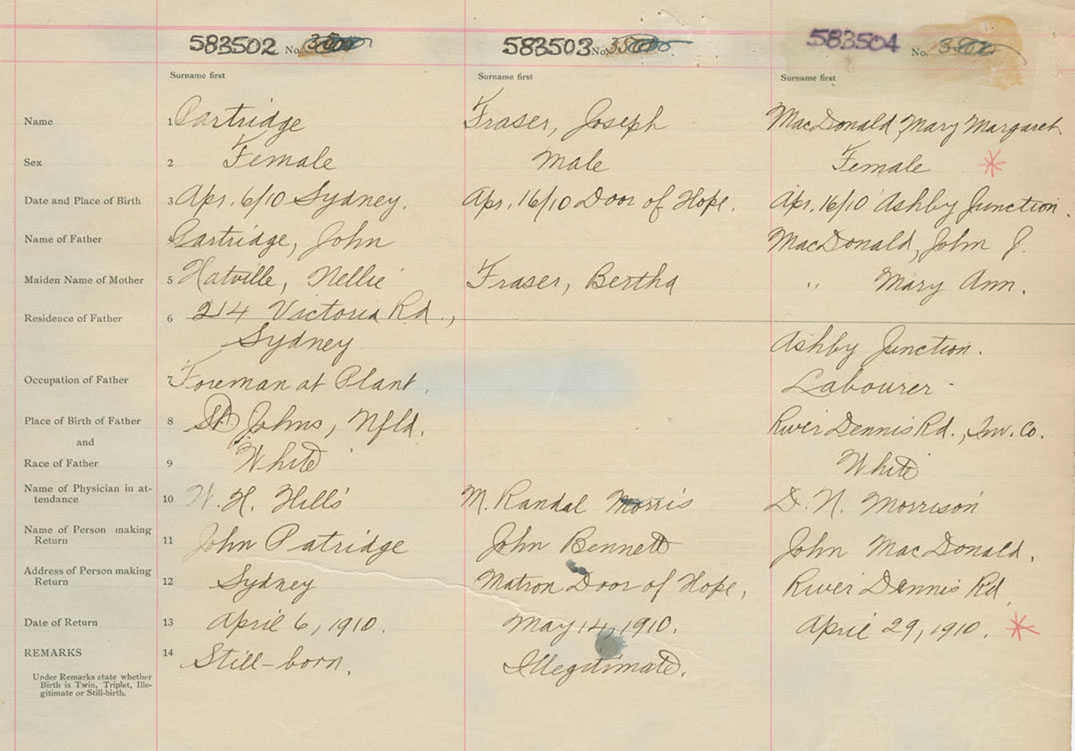 583502 No. 583503 No. 583504 No.
Surname first Surname first Surname first
Name 1 Partridge Fraser, Joseph MacDonald Mary Margaret
Sex 2 Female Male Female
Date and Place of Birth 3 Apr. 6/10 Sydney. Apr. 16/10 Door of Hope. Apr. 16/10 Ashby Junction.
Name of Father 4 Partridge, John MacDonald, John J.
Maiden Name of Mother 5 Hatville, Nellie Fraser, Bertha " Mary Ann.
Residence of Father 6 214 Victoria Rd.,
Sydney Ashby Junction.
Occupation of Father 7 Foreman at Plant. Labourer
Place of Birth of Father 8 St. Johns, Nfld. River Dennis Rd., Inv. Co.
and
Race of Father 9 White White
Name of Physician in at-
tendance 10 W. H. Hills M. Randal Morris D. N. Morrison
Name of Person making
Return 11 John Patridge John Bennett John MacDonald.
Address of Person making
Return 12 Sydney Matron Door of Hope, River Dennis Rd
Date of Return 13 April 6, 1910. May 14, 1910. April 29, 1910.
REMARKS 14 Still-born. Illegitimate.
Under Remarks state whether
Birth is Twin, Triplet, Ille-
gitimate or Still-birth.